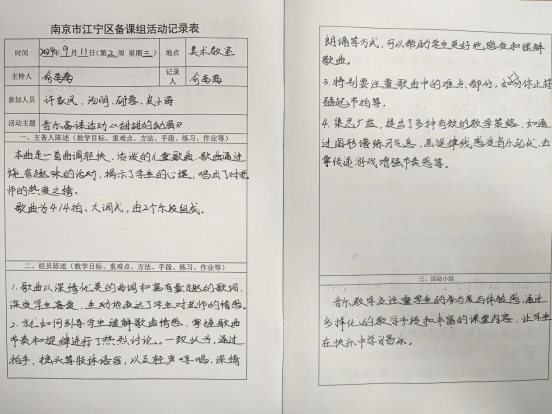 南京市江宁区备课组活动记录表
时间 2019年9月11日(第2周 星期三) 地点 美术教室
主持人 俞燕燕 记录人 俞燕燕
参加人员 许敬凤、
活动主题 音乐备课活动《甜甜的秘密》
一、主备人陈述（教学目标、重难点、方法、手段、练习、作业等）
本曲是一首曲调轻快、活泼的儿童歌曲。歌曲通过
饶有趣味的活动，揭示了学生的心理，唱出了对老
师的热爱之情。
歌曲为4/4拍、大调式，由2个乐段组成。
二、组员陈述（教学目标、重难点、方法、手段、练习、作业等）
1.歌曲以深情优美的曲调和富有童趣的歌词，
深受学生喜爱，生动地表达了学生对老师的情感。
2.就如何引导学生理解歌曲情感、掌握歌曲
节奏和旋律进行了热烈讨论。一致认为，通过
拍手、摇头等肢体语言，以及轻声哼唱、深情
朗诵等方式，可以帮助学生更好地感受和理解
歌曲。
3.特别要注意歌曲中的难点部分，如切休止符
弱起节拍等。
4.集思广益，提出了多种有效的教学策略，如通
过图形谱练习气息、画旋律线感受音乐起伏、击
掌传递游戏增强节奏感等。
三、活动小结
音乐教学应注重学生的参与度与体验感，通过
多样化的教学手段和丰富的课堂内容，让学生
在快乐中学习音乐。